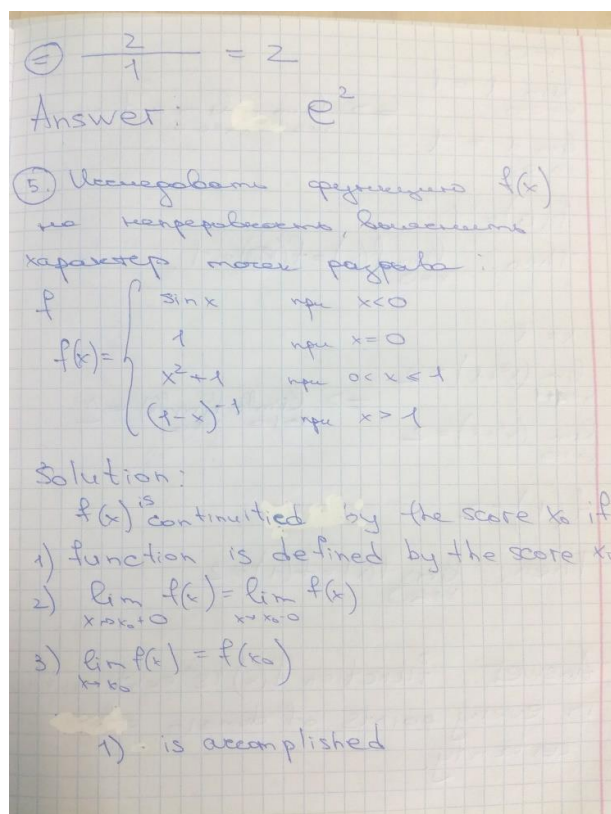 = 2/1 = 2
Answer: e²
5. Исследовать функцию f(x)
на непрерывность, выяснить
характер точек разрыва:
f
f(x) = { sin x при x<0
1 при x=0
x²+1 при 0<x≤1
(1-x)⁻¹ при x>1
Solution:
f(x) is continuitied by the score x₀ if
1) function is defined by the score x₀
2) lim x→x₀+0 f(x) = lim x→x₀-0 f(x)
3) lim x→x₀ f(x) = f(x₀)
1) is accomplished